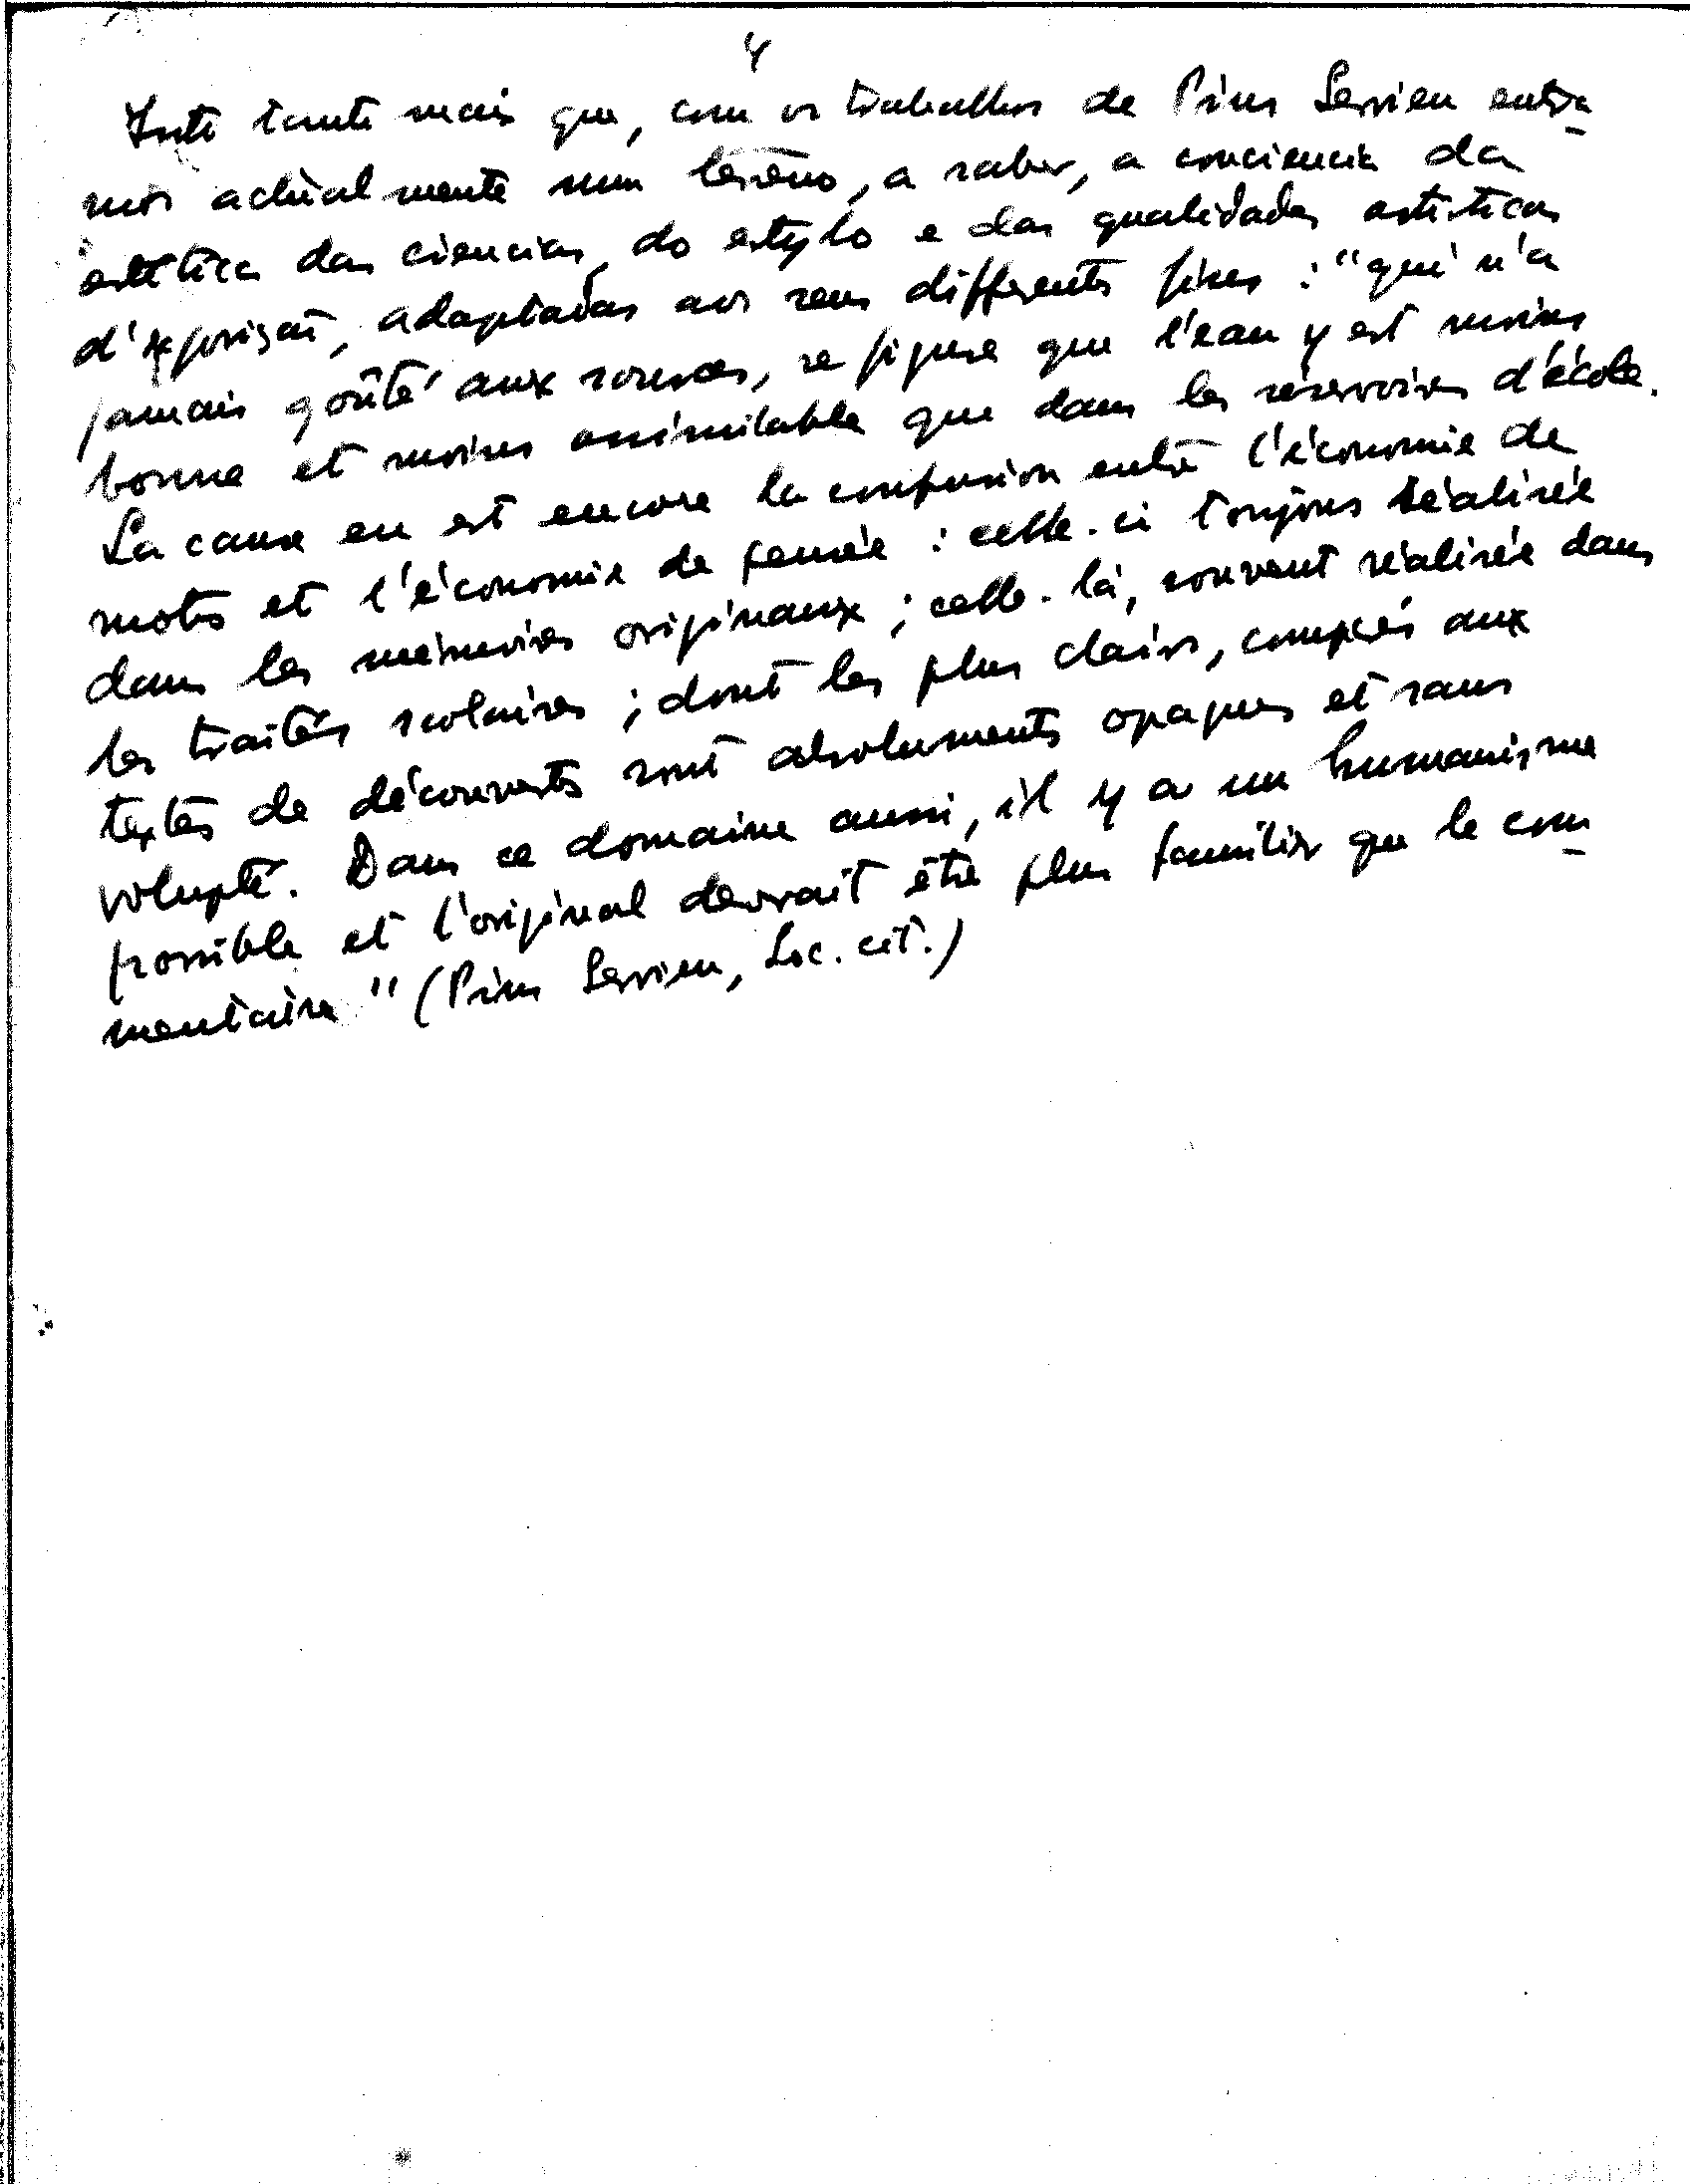 4
Isto tanto mais que, com os trabalhos de Pius Servien entra
mos actualmente num terreno, a saber, a conciencia da
estetica das ciencias, do estylo e das qualidades artisticas
d'exposição, adaptadas aos seus differentes fins : "qui n'a
jamais goûté aux sources, se figure que l'eau y est moins
bonne et moins assimilable que dans les réservoirs d'école.
La cause en est encore la confusion entre l'économie de
mots et l'économie de pensée : celle-ci toujours réalisée
dans les mémoires originaux ; celle-là, souvent réalisée dans
les traités scolaires ; dont les plus clairs, comparés aux
textes de découvertes sont absoluments opaques et sans
volupté. Dans ce domaine aussi, il y a un humanisme
possible et l'original devrait être plus familier que le com
mentaire" (Pius Servien, Loc. cit.)